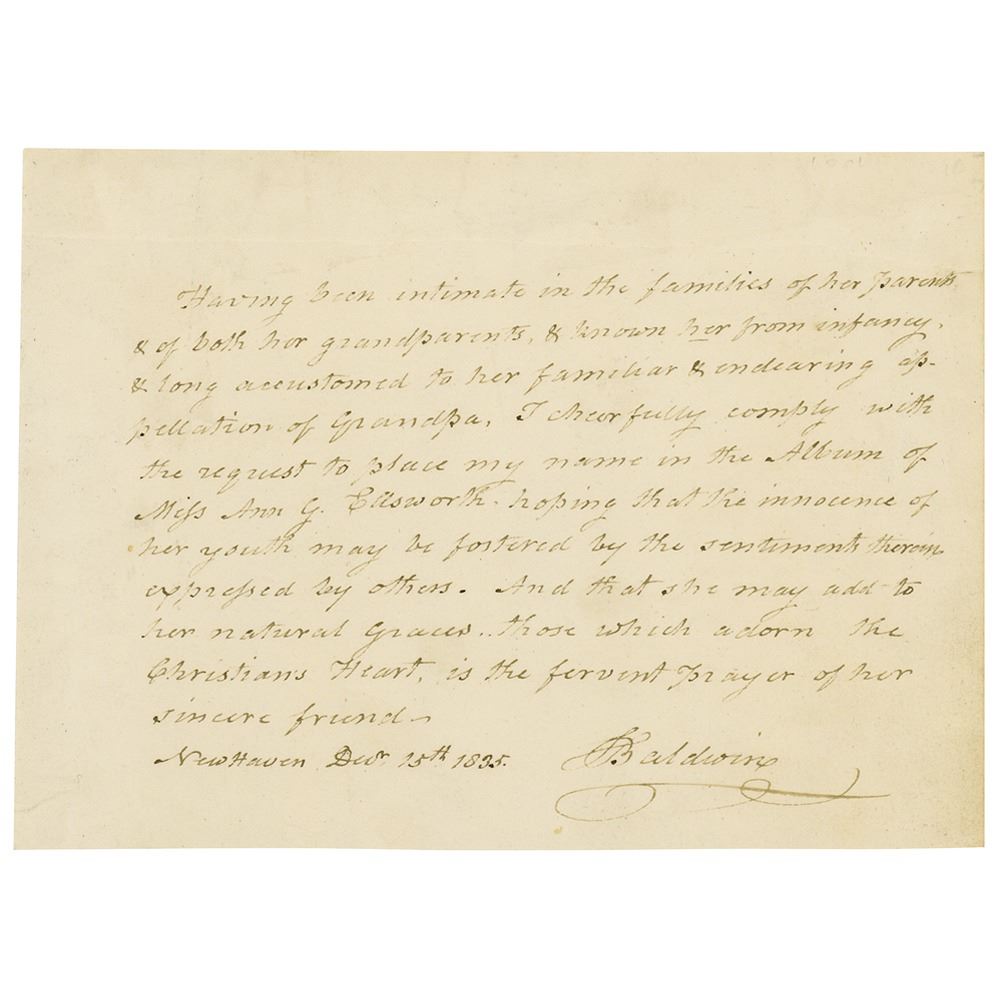 Having been intimate in the families of her Parents
& of both her grandparents, & known her from infancy,
& long accustomed to her familiar & endearing ap-
pellation of Grandpa, I cheerfully comply with
the request to place my name in the Album of
Miss Ann G. Edsworth - hoping that the innocence of
her youth may be fostered by the sentiments therein
expressed by others. And that she may add to
her natural Graces.. those which adorn the
Christians Heart, is the fervent Prayer of her
sincere friend -
New Haven Decr 15th 1835. SBaldwin